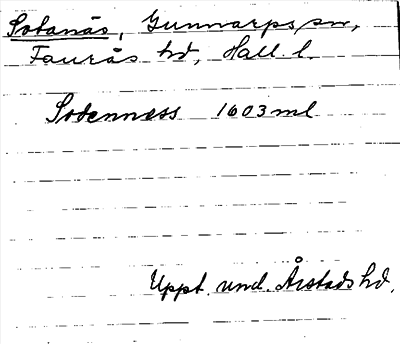 Sotanäs, Gunnarps sn,
Faurås hd, Hall. l.
Sodenness 1603 ml
Uppt. und. Årstads hd.